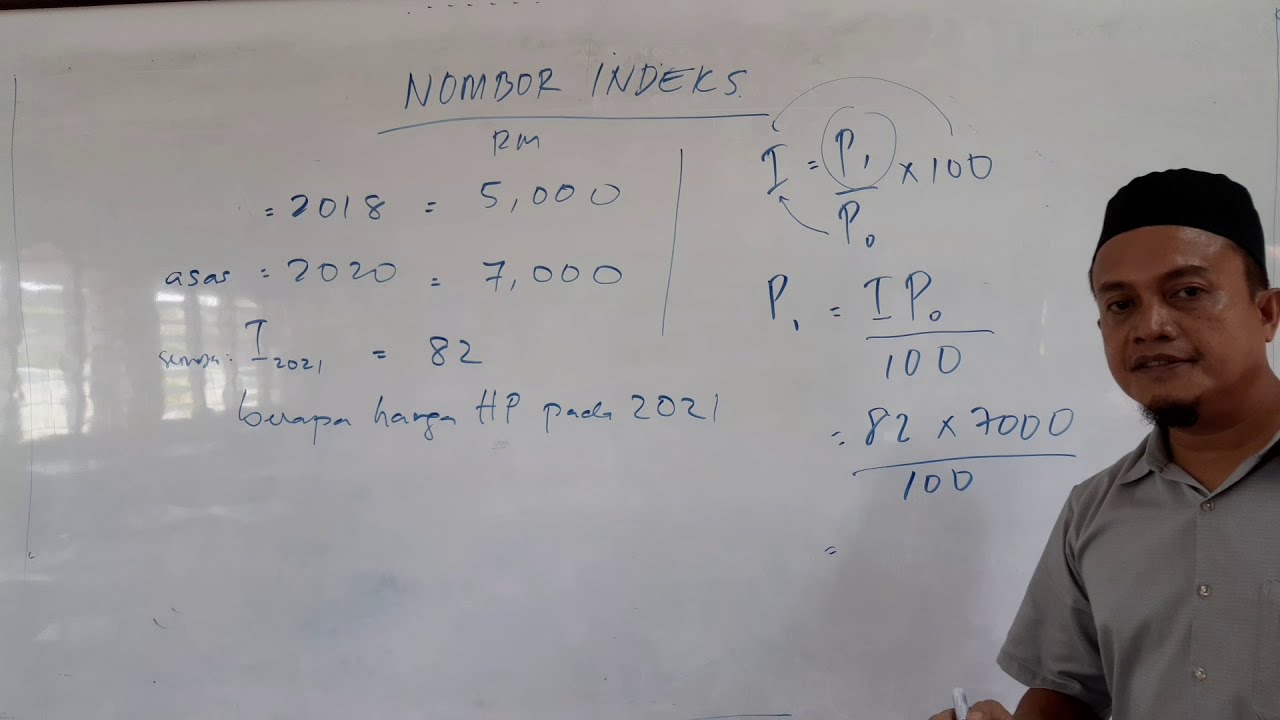 NOMBOR INDEKS
RM
= 2018 = 5,000
asas = 2020 = 7,000
I₂₀₂₁ = 82
berapa harga HP pada 2021
I = P₁/P₀ × 100
P₁ = IP₀/100
= 82 × 7000/100
=